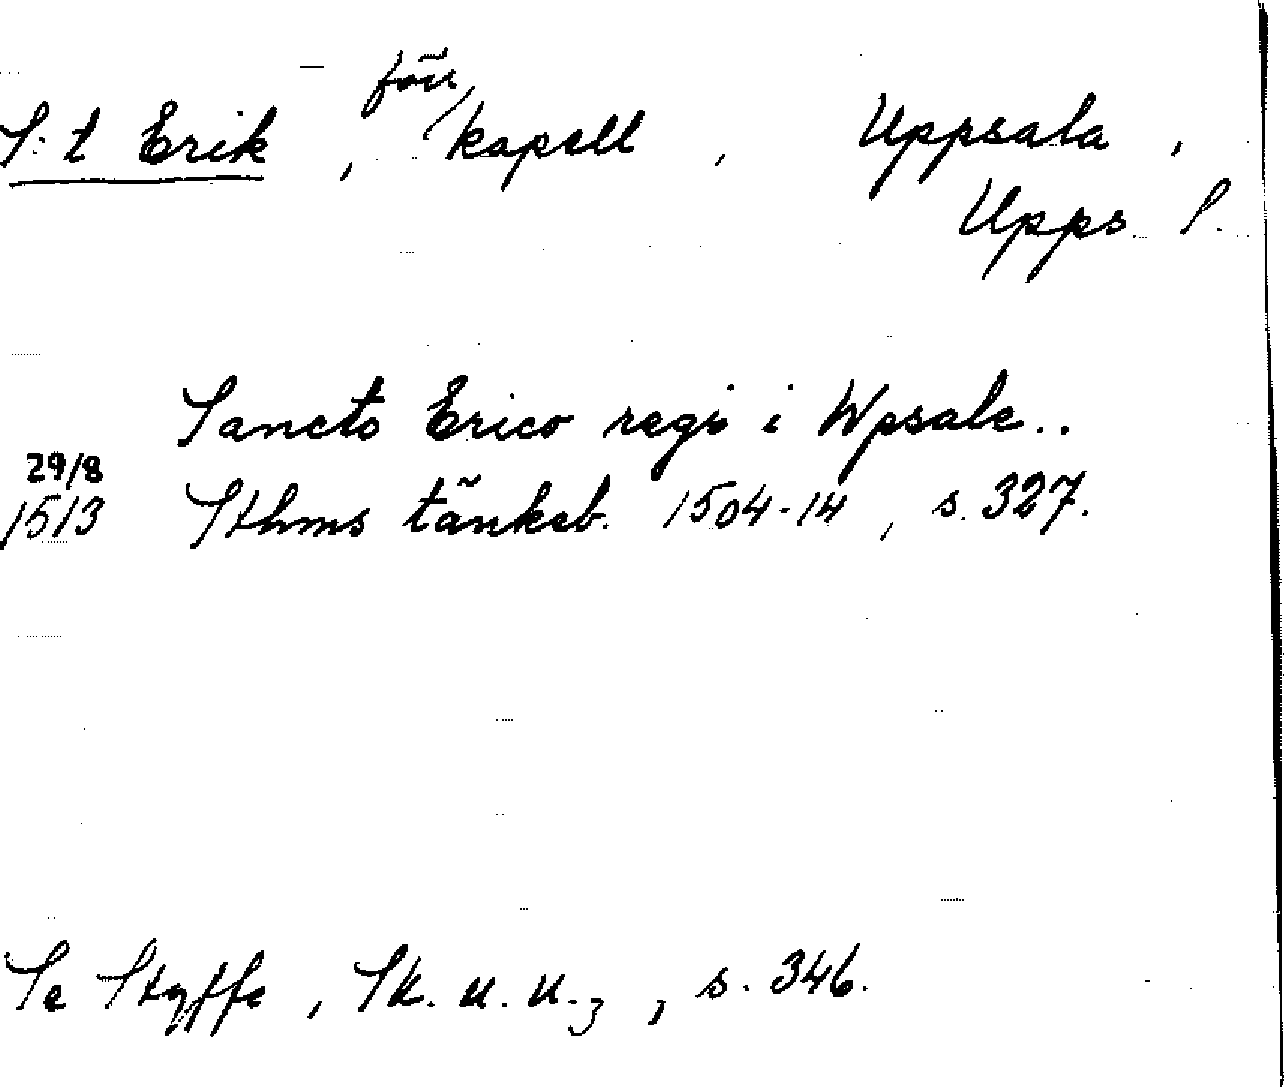 S:t Erik, förr kapell, Uppsala,
Upps. l.
Sancto Erico regi i Wpsale..
29/8
1513 Sthms tänkeb. 1504-14, s. 327.
Se Styffe, Sk. u. u.3, s. 346.